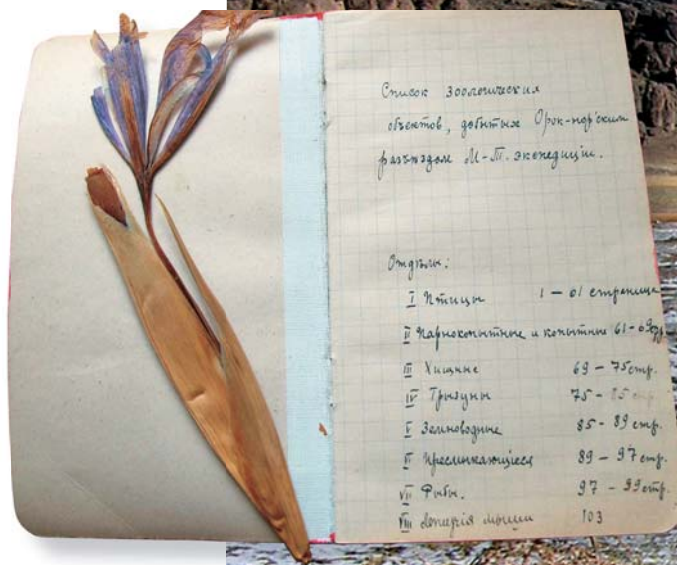 Список зоологических
объектов, добытых Орок-норским
разъѣздом М-Т. экспедиции.
Отдѣлы:
I Птицы 1 – 61 страница
II Парнокопытные и копытные 61-69
III Хищные 69 – 75 стр.
IV Грызуны 75 - 85 стр.
V Земноводные 85 - 89 стр.
VI Пресмыкающiеся 89 – 97 стр.
VII Рыбы. 97 – 99 стр.
VIII Летучiя мыши 103